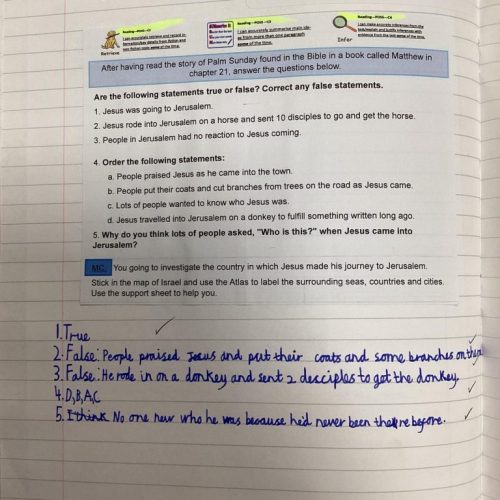 Reading—PO15—C3
I can accurately retrieve and record information/key details from fiction and non fiction texts some of the time.
Retrieve
Summarise it
Reading—PO15—C3
I can accurately summarise main ideas from more than one paragraph some of the time.
Reading—PO15—C4
I can make accurate inferences from the text/explain and justify inferences with evidence from the text some of the time.
Infer
After having read the story of Palm Sunday found in the Bible in a book called Matthew in
chapter 21, answer the questions below.
Are the following statements true or false? Correct any false statements.
1. Jesus was going to Jerusalem.
2. Jesus rode into Jerusalem on a horse and sent 10 disciples to go and get the horse.
3. People in Jerusalem had no reaction to Jesus coming.
4. Order the following statements:
a. People praised Jesus as he came into the town.
b. People put their coats and cut branches from trees on the road as Jesus came.
c. Lots of people wanted to know who Jesus was.
d. Jesus travelled into Jerusalem on a donkey to fulfill something written long ago.
5. Why do you think lots of people asked, "Who is this?" when Jesus came into
Jerusalem?
MC: You going to investigate the country in which Jesus made his journey to Jerusalem.
Stick in the map of Israel and use the Atlas to label the surrounding seas, countries and cities.
Use the support sheet to help you.
1. True
2. False: People praised Jesus and put their coats and some branches on the
3. False: He rode in on a donkey and sent 2 desciples to get the donkey.
4. D,B,A,C
5. I think No one new who he was because he'd never been there before.